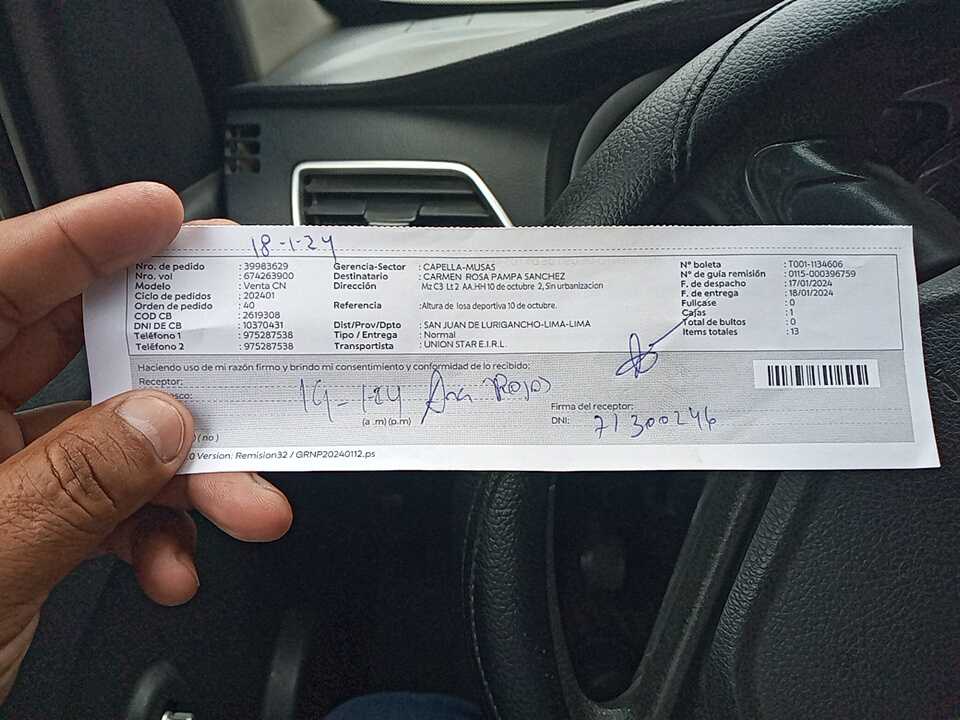 18-1-24
Nro. de pedido : 39983629 Gerencia-Sector : CAPELLA-MUSAS N° boleta : T001-1134606
Nro. vol : 674263900 Destinatario : CARMEN ROSA PAMPA SANCHEZ N° de guía remisión : 0115-000396759
Modelo : Venta CN Dirección Mz C3 Lt 2 AA.HH 10 de octubre 2, Sin urbanizacion F. de despacho : 17/01/2024
Ciclo de pedidos : 202401 F. de entrega : 18/01/2024
Orden de pedido : 40 Referencia : Altura de losa deportiva 10 de octubre. Fullcase : 0
COD CB : 2619308 Cajas : 1
DNI DE CB : 10370431 Dist/Prov/Dpto : SAN JUAN DE LURIGANCHO-LIMA-LIMA Total de bultos : 0
Teléfono 1 : 975287538 Tipo / Entrega : Normal Items totales : 13
Teléfono 2 : 975287538 Transportista : UNION STAR E.I.R.L.
Haciendo uso de mi razón firmo y brindo mi consentimiento y conformidad de lo recibido:
Receptor:
-1-24 Rojas
(a .m) (p.m) Firma del receptor:
DNI: 71300246
( no )
.0 Version: Remision32 / GRNP20240112.ps